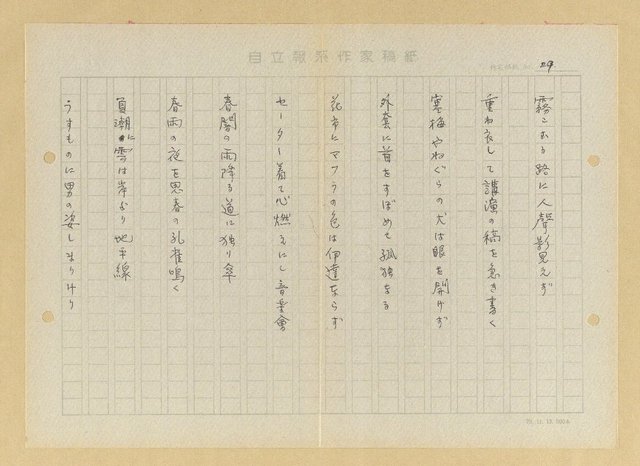 自立報系作家稿紙
29
霧こむる路に人聲影見えず
重ね衣して講演の稿を急き書く
寒梅やねぐらの犬は眼を開けず
外套に首をすぼめて孤独なる
花市にマフラの色は伊達ならず
セーター着て心燃えにし音楽會
春闇の雨降る道に独り傘
春雨の夜を思春の孔雀鳴く
貝潮に雲は岸より地平線
うすものに男の姿しまりけり